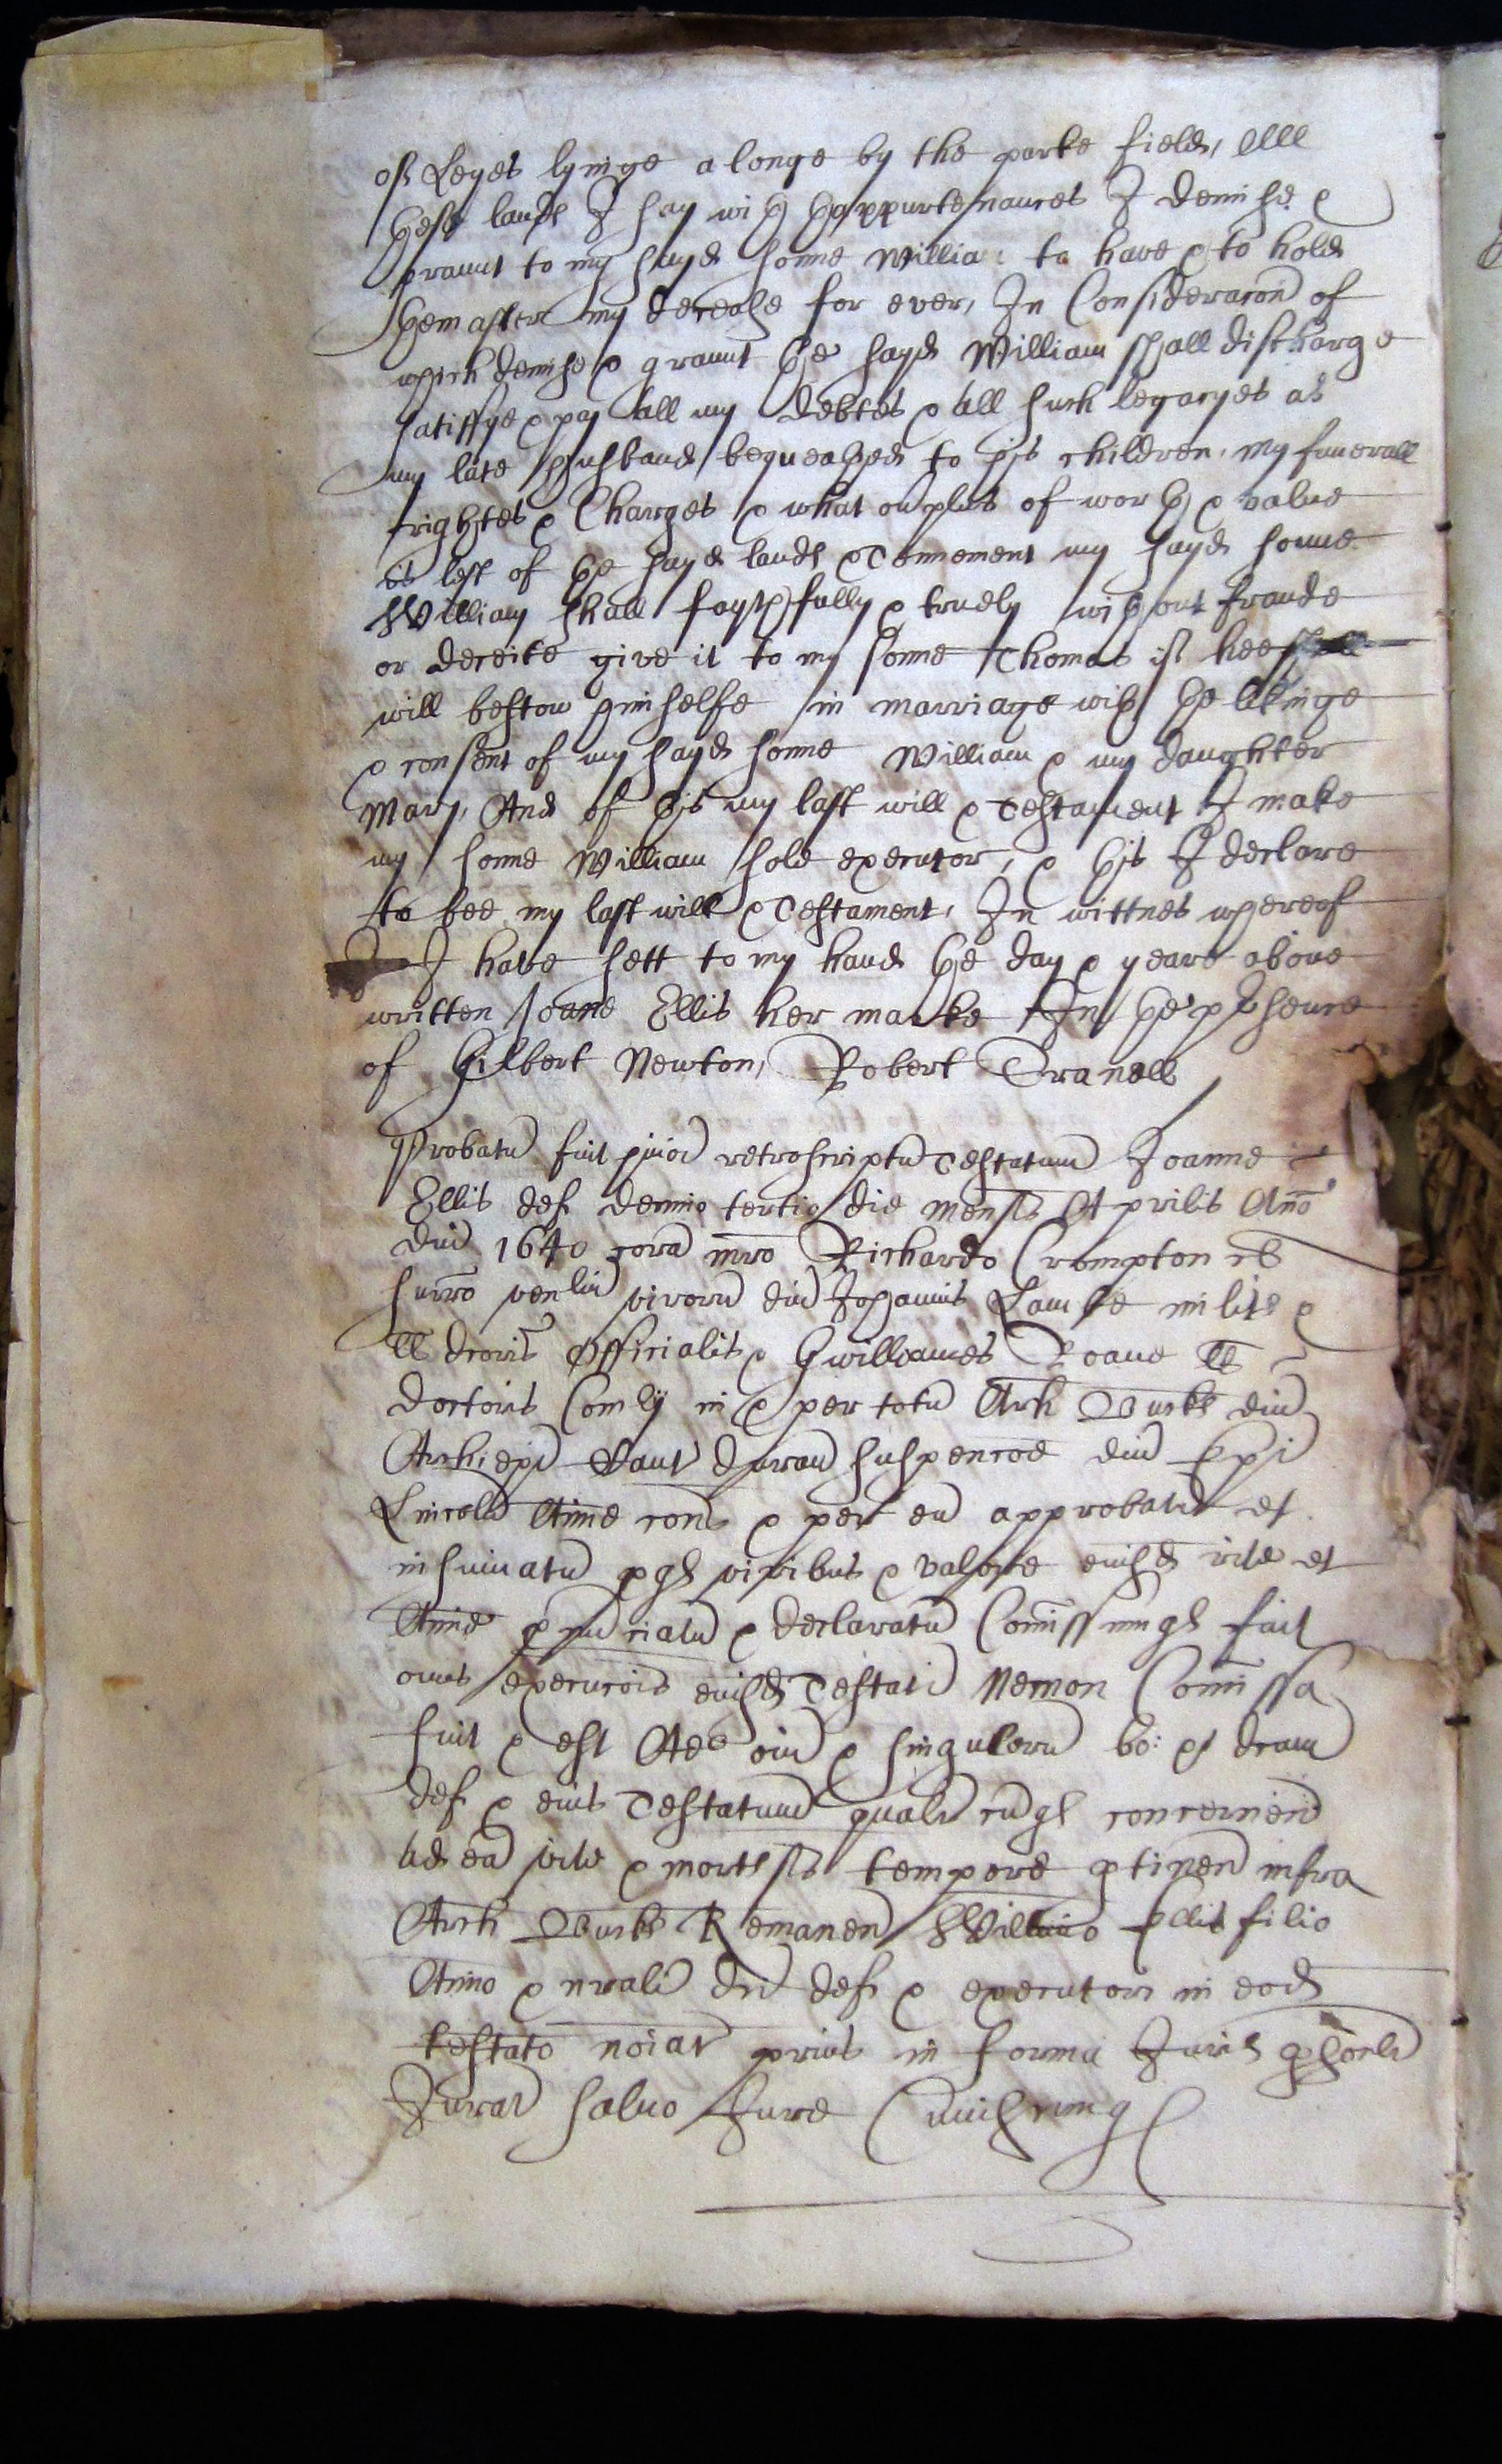 of Leyes lyinge a longe by the parke field, All
these lands I say with thappurtenances I demise &
graunt to my sayd sonne William to have & to hold
them after my decease for ever, In Consideracon of
which demise & graunt the sayd William shall discharge
satisfye & pay all my debtes & all such legacyes as
my late Husband bequeathed to his children, my funerall
rightes & Charges & what ouplus of worth & value
is left of the sayd lands & Tennement my sayd sonne
William shall faythfully & truely without fraude
or deceite give it to my sonne Thomas if hee
will bestow himselfe in marriage with the likinge
& consent of my sayd sonne William & my daughter
Mary, And of this my last will & Testament I make
my sonne William sole executor, & this I declare
to bee my last will & Testament, In wittnes whereof
I have sett to my hand the day & yeare above
written Joane Ellis her marke In the psence
of Gilbert Newton, Robert Cranell
Probatu fuit retroscriptu Testatum Joanne
Ellis def tertio die mensis Aprilis Ano
dni 1640 cora mro Richardo Crompton cl
surro venliu viroru dni Johannis Lambe milit &
ll dcoris Officialis & Gwilliames Roane ll
doctoris Comly in & per totu Arch Bucks dni
Archiepi Cant duran suspencoe dni Epi
Lincoln Anime cons & per eu approbatu et
insinuatu pqs viribus & valore eiusd vite et
Anime pnuciatu & declaratu Comissumqs fuit
onus execucois eiusd Testati Necnon Comissa
fuit & est Adco oiu & singuloru bo: et
def & eius Testatum qualr cuqs concernen
ad ea vite & mortis sue tempore ptinen infra
Arch Bucks Remanen Willimo Ellis filio
dci def & executori in eod
testato noiat prius in forma Juris
Jurat salvo Jure Cuiuscumqs